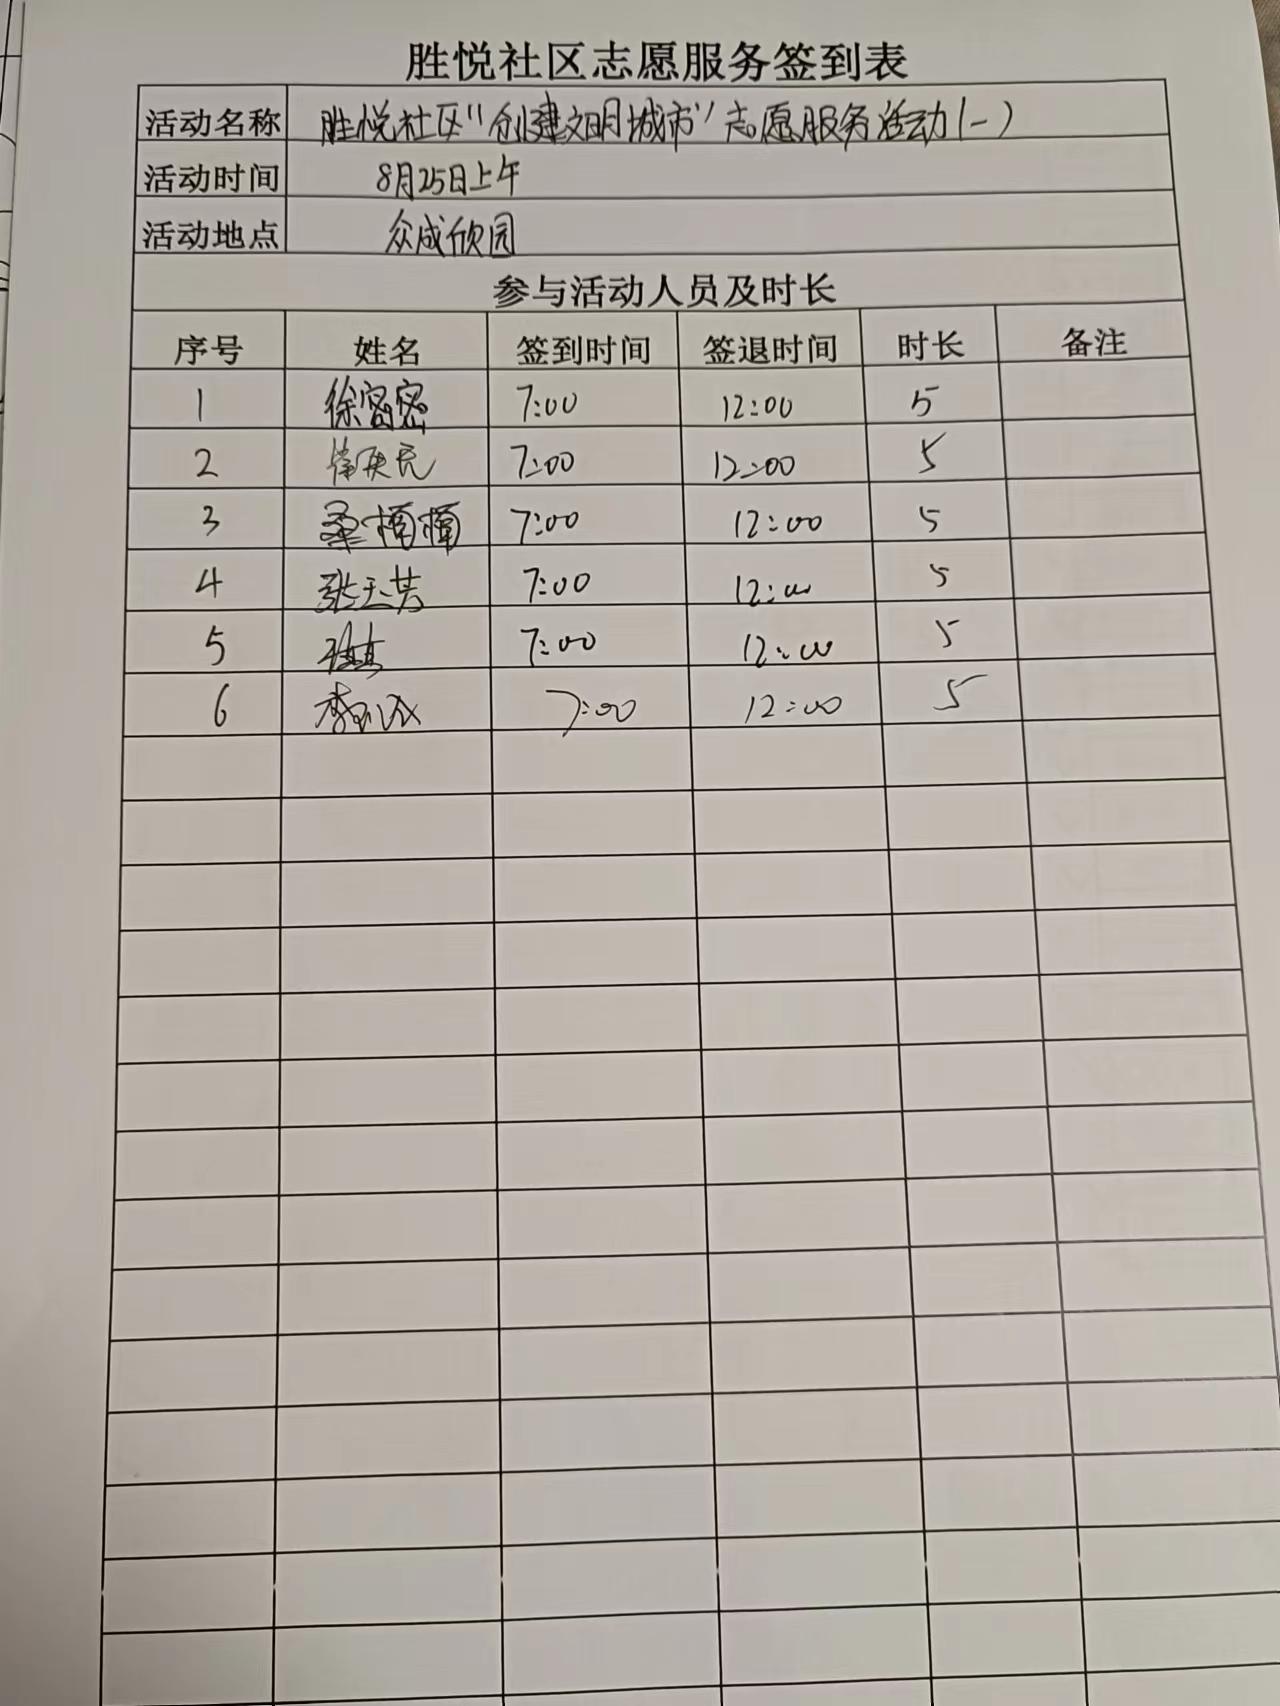 胜悦社区志愿服务签到表
活动名称 胜悦社区“创建文明城市”志愿服务活动(一)
活动时间 8月25日上午
活动地点 众成欣园
参与活动人员及时长
序号 姓名 签到时间 签退时间 时长 备注
1 徐密密 7:00 12:00 5
2 7:00 12:00 5
3 桑楠楠 7:00 12:00 5
4 张玉芳 7:00 12:00 5
5 7:00 12:00 5
6 7:00 12:00 5